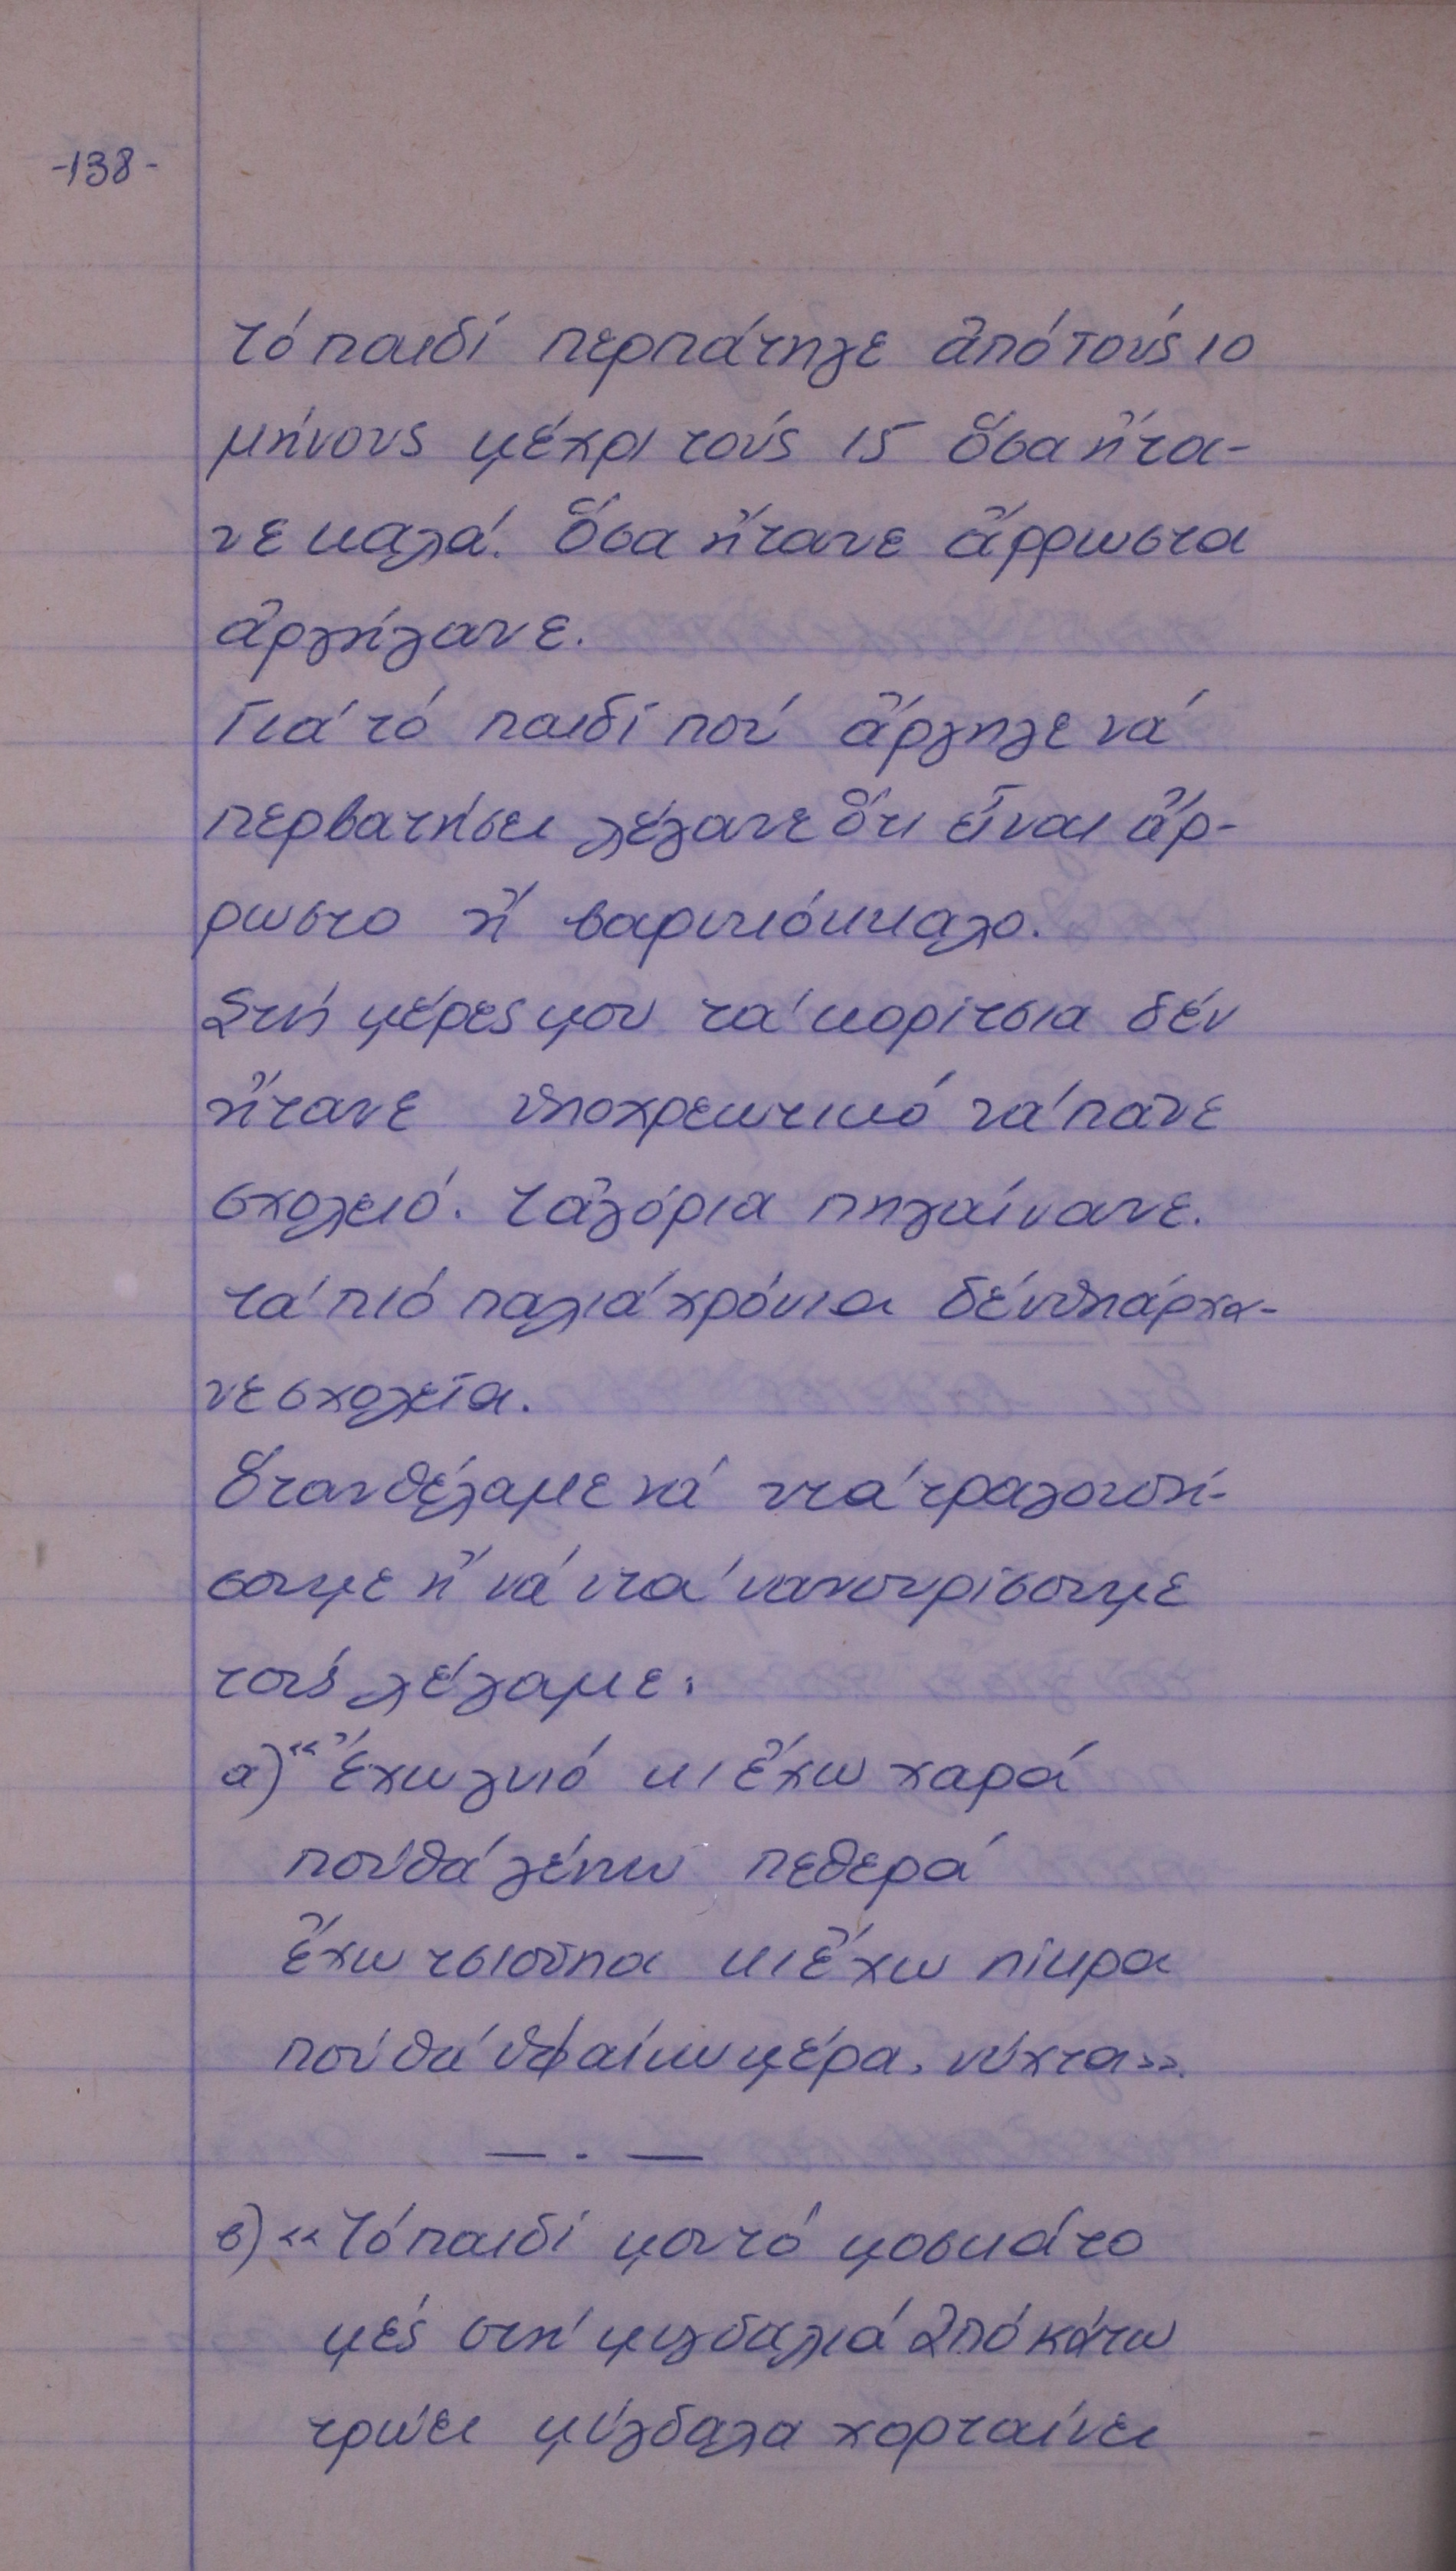 -138-
Τό παιδί περπάτηγε ἀπό τούς 10
μήνους μέχρι τούς 15 ὅσα ἤτα-
νε καλά. Ὅσα ἤτανε ἄρρωστα
ἀργήγανε.
Γιά τό παιδί πού ἄργηγε νά
περβατήσει λέγανε ὅτι εἶναι ἄρ-
ρωστο ἤ βαρυκόκκαλο.
Στίς μέρες μου τά κορίτσια δέν
ἤτανε ὑποχρεωτικό νά πᾶνε
σχολειό. Τἀγόρια πηγαίνανε.
Τά πιό παλιά χρόνια δέν ὑπάρχα-
νε σχολεῖα.
Ὅταν θέλαμε νά ντά τραγουδή-
σουμε ἤ νά ντά νανουρίσουμε
τούς λέγαμε:
α) «Ἔχω γυιό κι ἔχω χαρά
πού θά γένω πεθερά
ἔχω τσιούπα κι ἔχω πίκρα
πού θά ὑφαίνω μέρα, νύχτα».
— . —
β) «Τό παιδί μου τό μοσκάτο
μές στή μυγδαλιά ἀπό κάτω
τρώει μύγδαλα χορταίνει